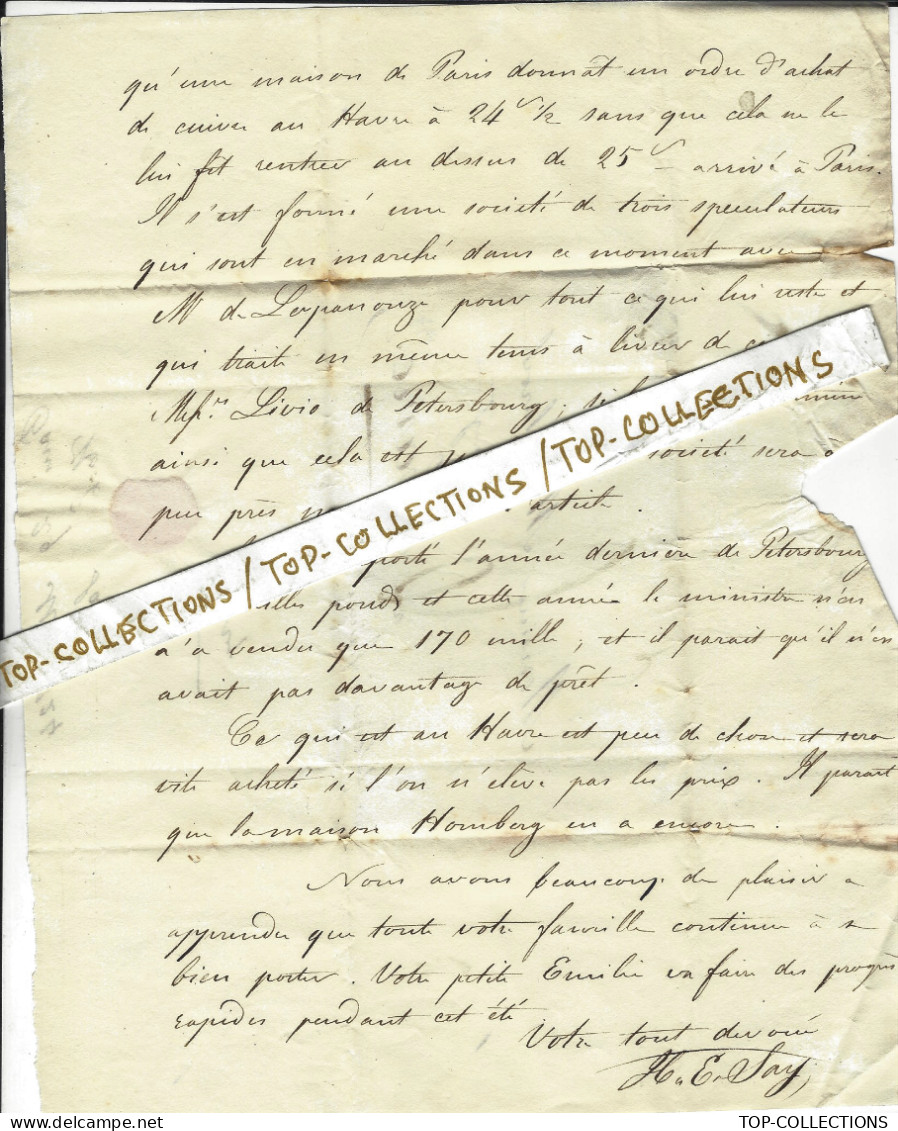 qu'une maison de Paris donnat un ordre d'achat
de cuivre au Havre à 24 1/2 sans que cela ne le
lui fit rentrer au dessus de 25 arrivé à Paris.
Il s'est formé une société de trois speculateurs
qui sont en marché dans ce moment avec
Mr de Lapanouze pour tout ce qui lui reste et
qui traite en même tems à livrer de
Livio de Petersbourg,
ainsi que cela est société sera à
peu près article.
porté l'année derniere de Petersbourg
milles pouds et cette année le ministre n'en
a vendu que 170 mille, et il parait qu'il n'en
avait pas davantage de prêt.
Ce qui est au Havre est peu de chose et sera
vite acheté si l'on n'élève pas les prix. Il parait
que la maison Homberg en a encore.
Nous avons beaucoup de plaisir a
apprendre que toute votre famille continue à se
bien porter. Votre petite Emilie va faire des progrès
rapides pendant cet été
Votre tout devoué
H. E. Say,
TOP-COLLECTIONS / TOP-COLLECTIONS / TOP-COLLECTIONS
TOP-COLLECTIONS